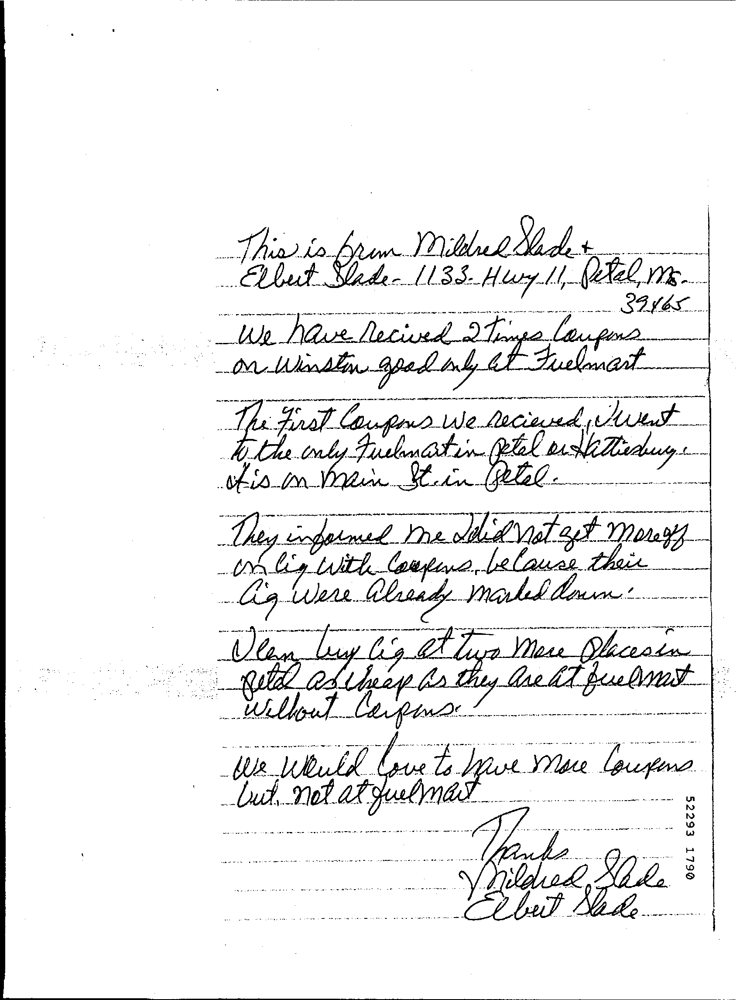 This is from Mildred Slade +
Elbert Slade - 1133 - Hwy 11, Petal, Ms.
39465
We have recived 2 Times Coupons
on Winston good only at Fuelmart
The First Coupons We recieved, I went
to the only Fuelmart in petal or Hattiesburg.
It is on Main St. in Petal.
They informed me I did not get more off
on Cig With Coupons, because their
Cig Were Already marked down.
I can buy Cig at two More Places in
petal as cheap as they are at fuelmart
without Coupons.
We Would love to have more Coupons
but, not at fuelmart
Thanks
Mildred Slade
Elbert Slade
52293 1790